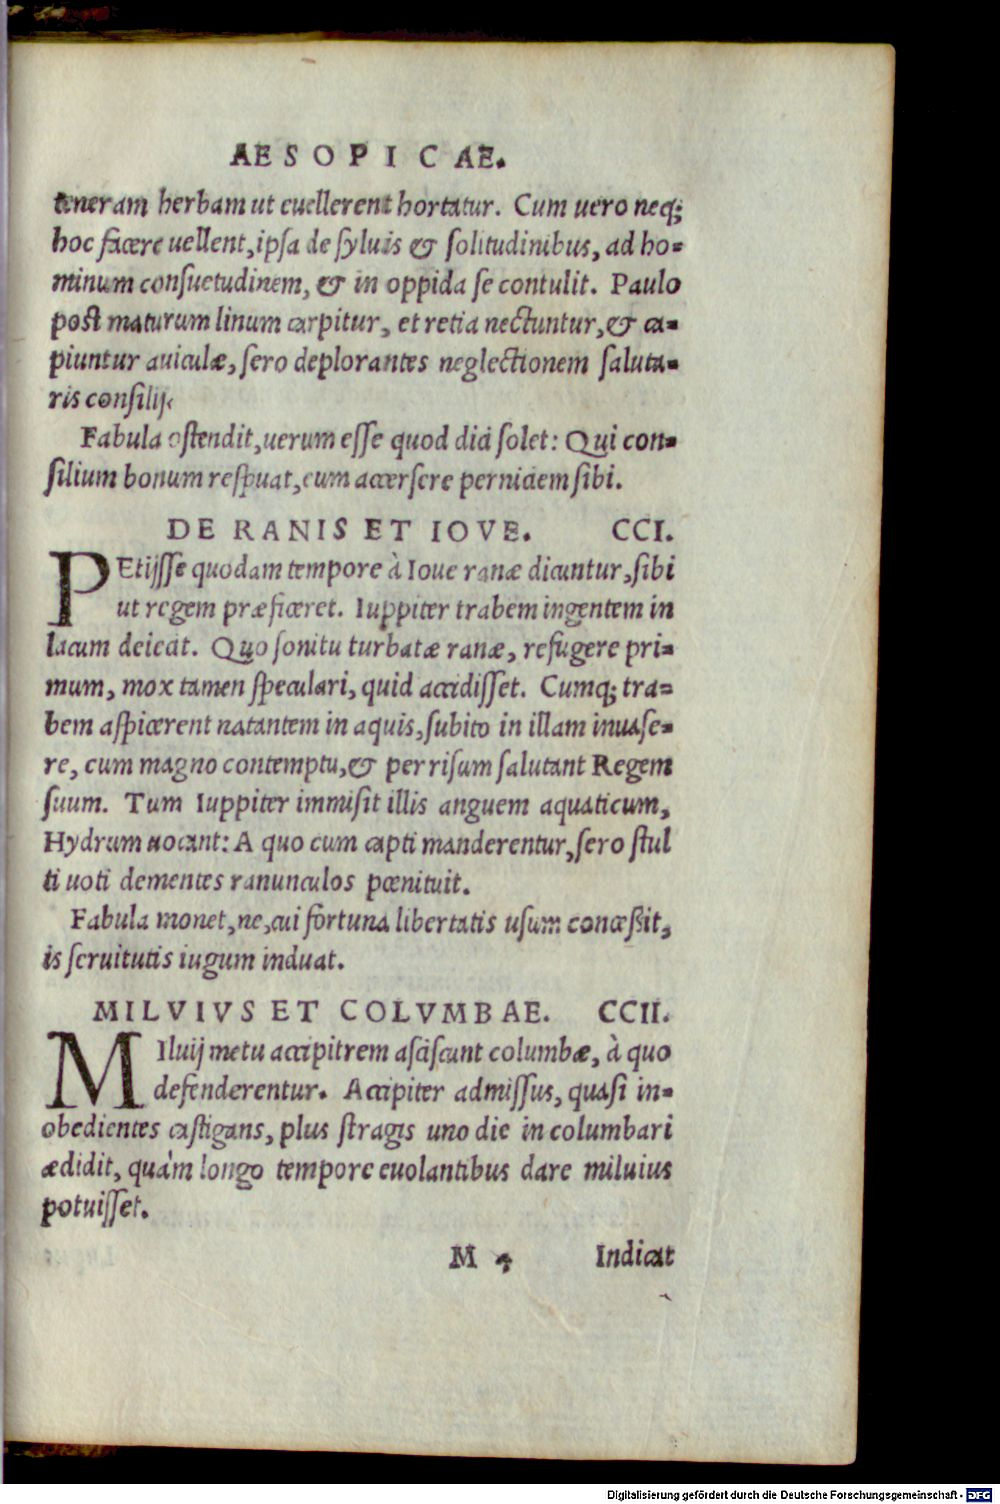 AESOPICAE.
teneram herbam ut euellerent hortatur. Cum uero neq;
hoc facere uellent, ipsa de syluis & solitudinibus, ad ho-
minum consuetudinem, & in oppida se contulit. Paulo
post maturum linum carpitur, et retia nectuntur, & ca-
piuntur auiculæ, sero deplorantes neglectionem saluta-
ris consilij.
Fabula ostendit, uerum esse quod dici solet: Qui con-
silium bonum respuat, eum accersere perniciem sibi.
DE RANIS ET IOVE. CCI.
PEtijsse quodam tempore à Ioue ranæ dicuntur, sibi
ut regem præficeret. Iuppiter trabem ingentem in
lacum deiecat. Quo sonitu turbatæ ranæ, refugere pri-
mum, mox tamen speculari, quid accidisset. Cumq; tra-
bem aspicerent natantem in aquis, subito in illam inuase-
re, cum magno contemptu, & per risum salutant Regem
suum. Tum Iuppiter immisit illis anguem aquaticum,
Hydrum uocant: A quo cum capti manderentur, sero stul
ti uoti dementes ranunculos pœnituit.
Fabula monet, ne, cui fortuna libertatis usum concessit,
is seruitutis iugum induat.
MILVIVS ET COLVMBAE. CCII.
MIluij metu accipitrem asciscunt columbæ, à quo
defenderentur. Accipiter admissus, quasi in-
obedientes castigans, plus stragis uno die in columbari
ædidit, quàm longo tempore euolantibus dare miluius
potuisset.
M 4 Indicat
Digitalisierung gefördert durch die Deutsche Forschungsgemeinschaft - DFG